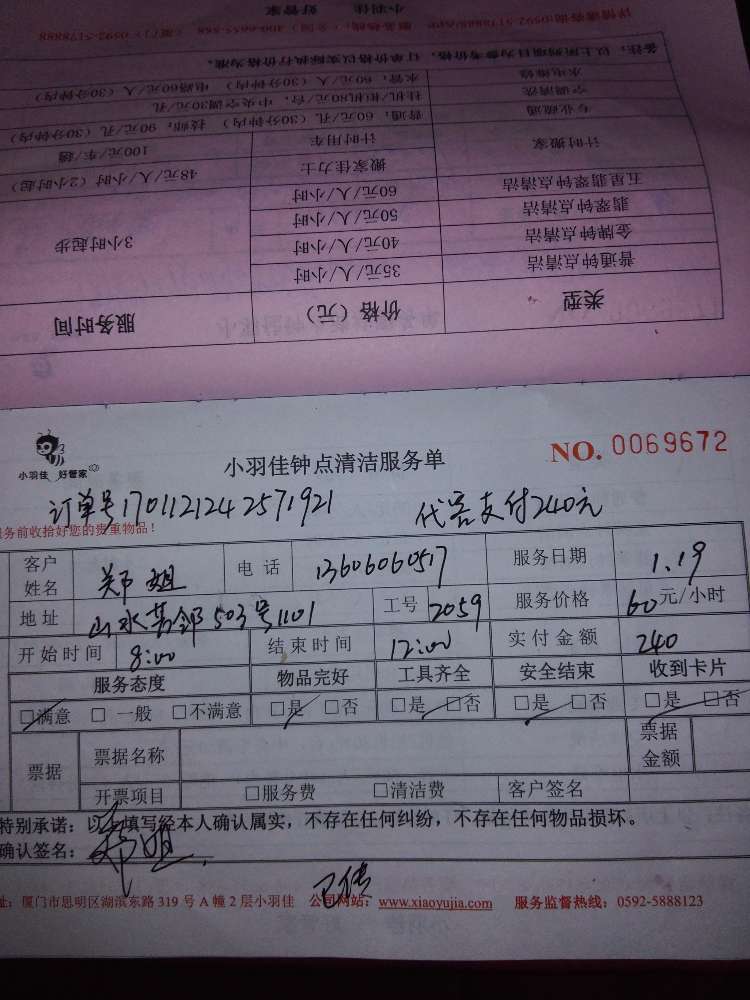 类型 价格（元） 服务时间
普通钟点清洁 35元/人/小时
金牌钟点清洁 40元/人/小时 3小时起步
翡翠钟点清洁 50元/人/小时
五星翡翠钟点清洁 60元/人/小时
计时搬家 搬家佳力士 48元/人/小时（2小时起）
计时用车 100元/车/趟
专业疏通 普通：60元/孔（30分钟内） 技师：90元/孔（30分钟内）
空调清洗 挂机/柜机80元/台，中央空调30元/孔
水电维修 水管：60元/人（30分钟内） 电路60元/人（30分钟内）
备注：以上所列项目为参考价格，订单价格以实际执行价格为准。
小羽佳 好管家
服务热线：（全国）400-6655-888 （厦门）0592-5178888
小羽佳 好管家
小羽佳钟点清洁服务单 NO. 0069672
订单号1701121242571921 代客支付240元
务前收拾好您的贵重物品！
客户姓名 郑姐 电话 13606060517 服务日期 1.19
地址 山水芳邻503号1101 工号 2059 服务价格 60元/小时
开始时间 8:00 结束时间 12:00 实付金额 240
服务态度 物品完好 工具齐全 安全结束 收到卡片
□满意 □一般 □不满意 □是 □否 □是 □否 □是 □否 □是 □否
票据 票据名称 票据金额
开票项目 □服务费 □清洁费 客户签名
特别承诺：以上填写经本人确认属实，不存在任何纠纷，不存在任何物品损坏。
确认签名：郑姐
已传
址：厦门市思明区湖滨东路 319 号 A 幢 2 层小羽佳 公司网站：www.xiaoyujia.com 服务监督热线：0592-5888123